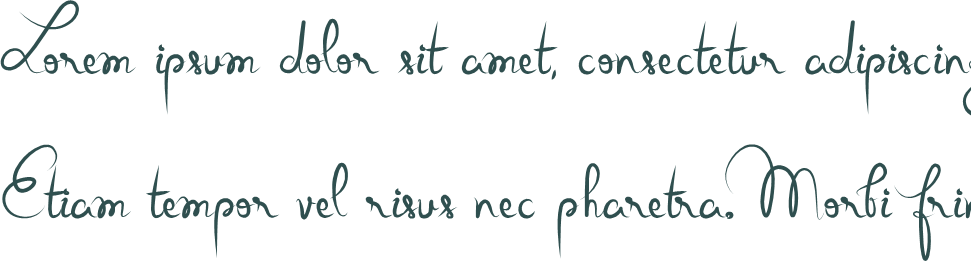 Lorem ipsum dolor sit amet, consectetur adipiscing
Etiam tempor vel risus nec pharetra. Morbi frin